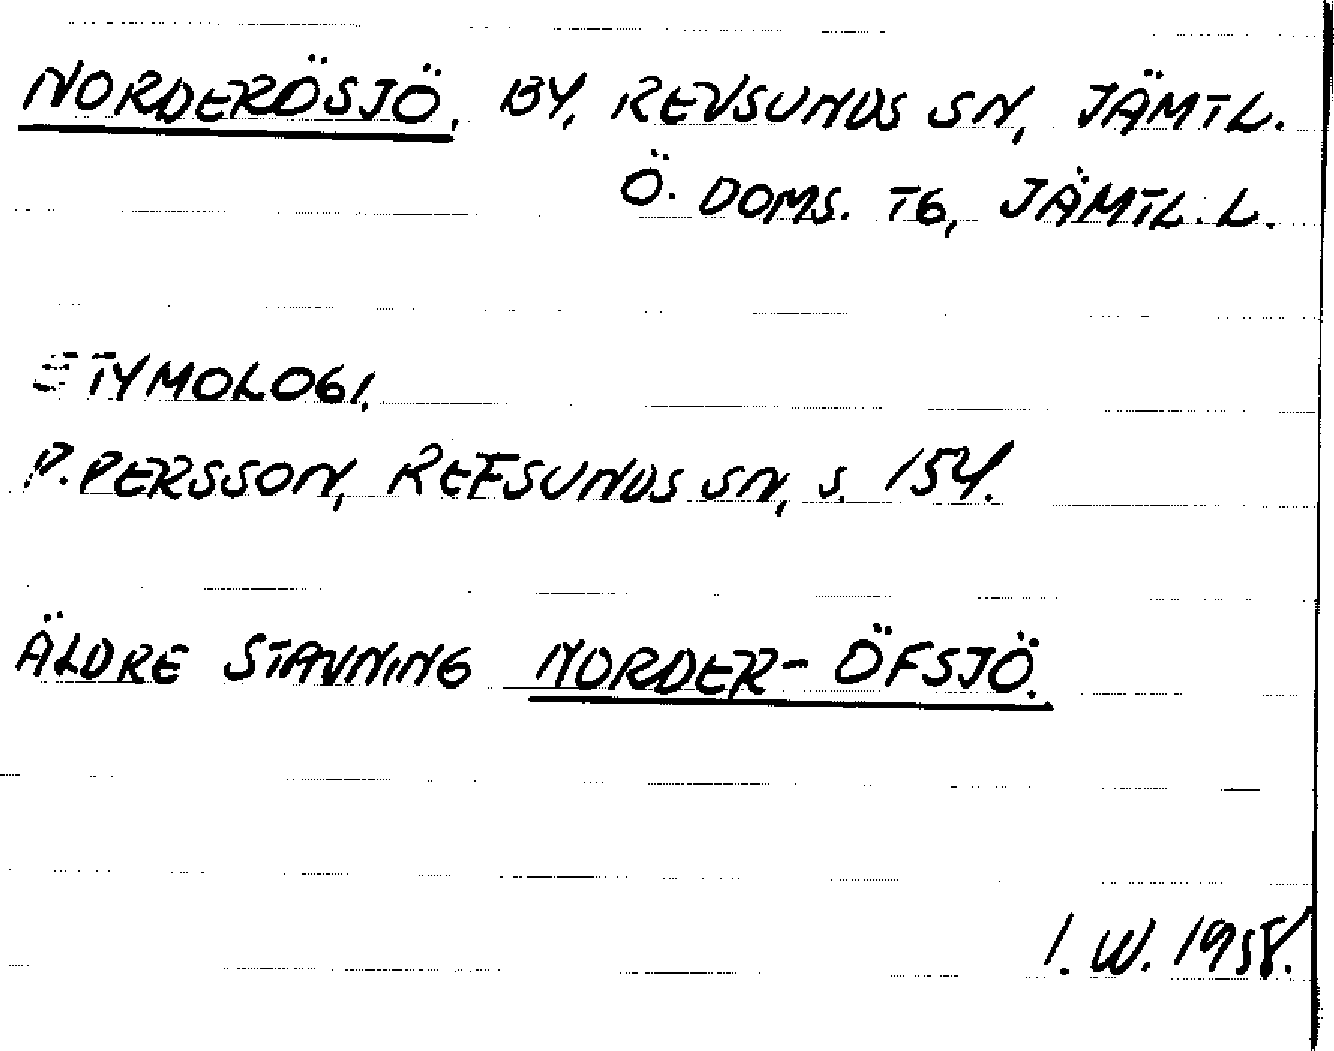 NORDERÖSJÖ, BY, REVSUNDS SN, JÄMTL.
Ö. DOMS. TG, JÄMTL. L.
ETYMOLOGI,
P. PERSSON, REFSUNDS SN, S. 154.
ÄLDRE STAVNING NORDER-ÖFSJÖ.
I. W. 1958.